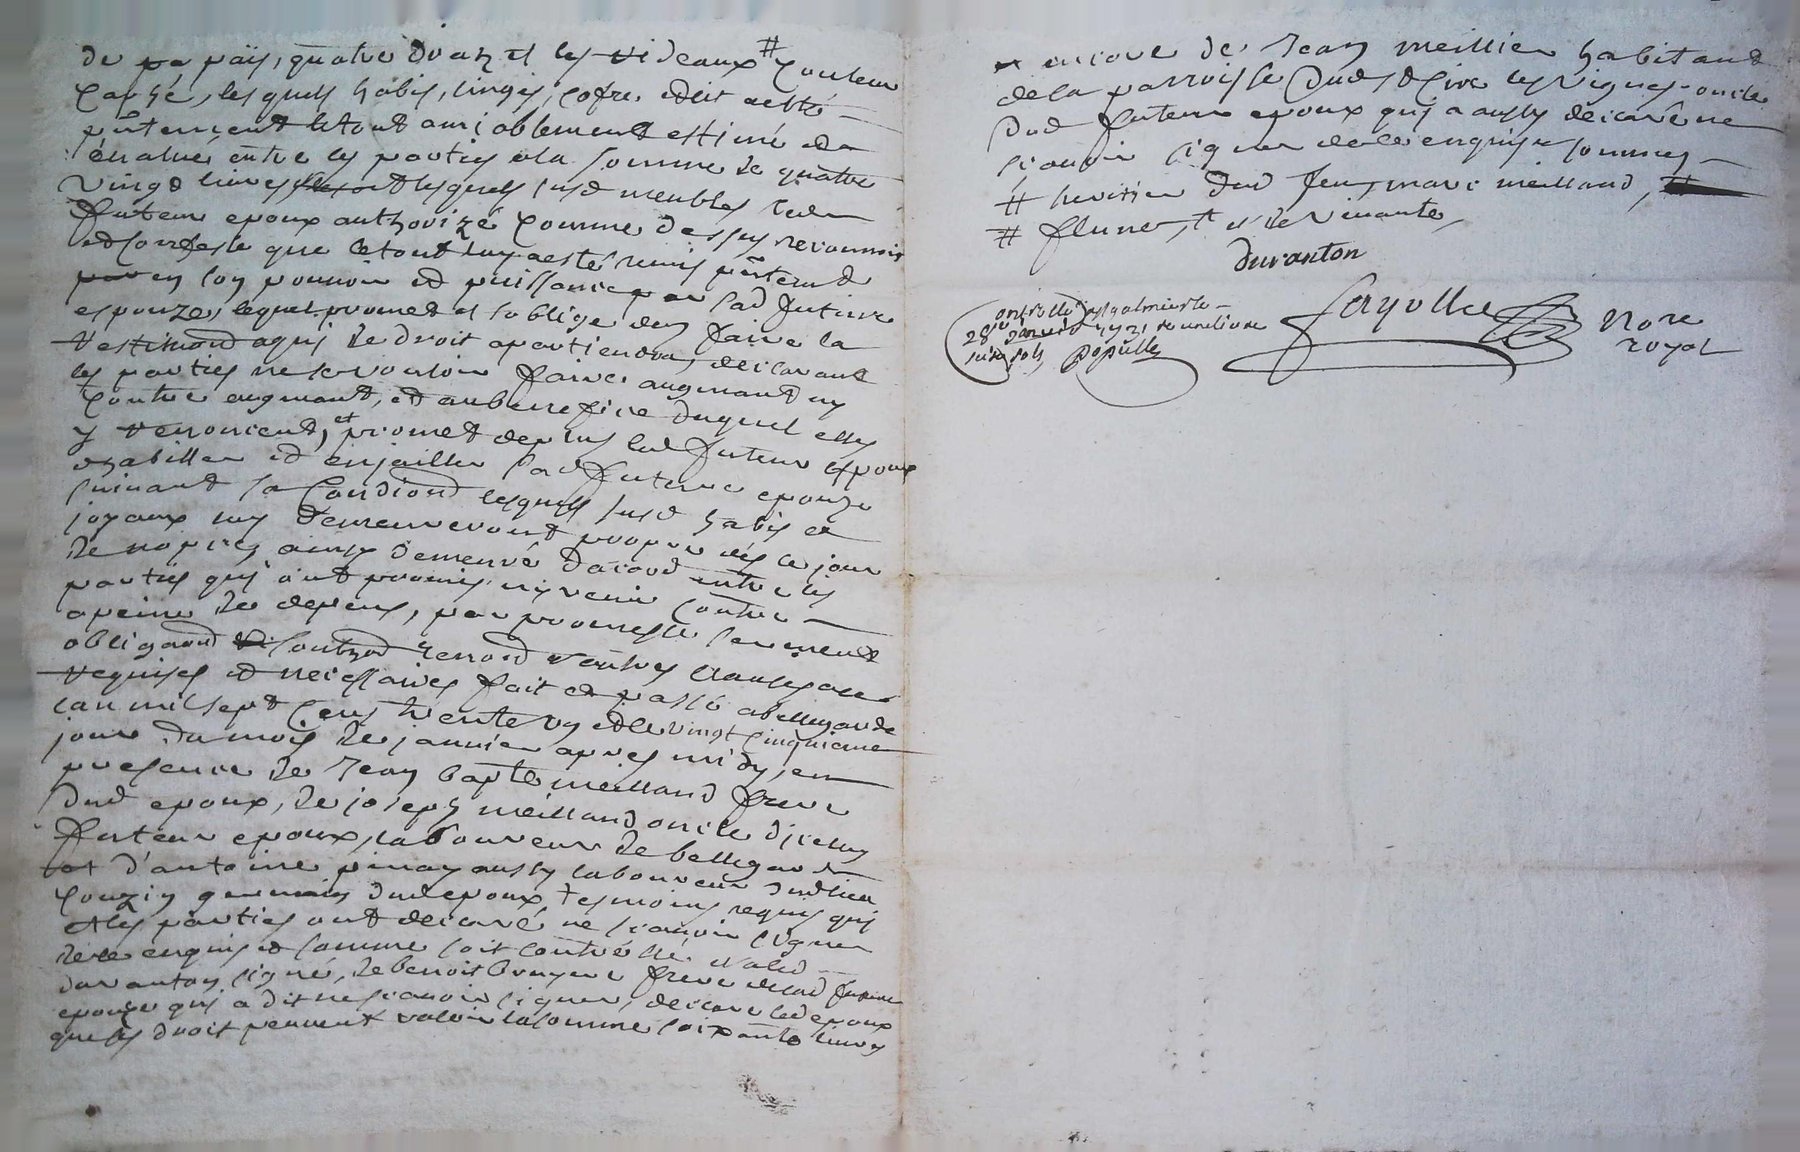 de pa païs, quatre draz et les rideaux # couleur
caffé, lesquels habis, linges, cofre edit a esté
pntement le tout amiablement estimé et
évalué entre les parties a la somme de quatre
vingt livres lesquels susd meubles led
futeur epoux authorizé comme dessus reconnois
et confesse que le tout luy a esté remis pntement
en son pouvoir et puissance par lad future
espouze, lequel promet et soblige den faire la
restitution a qui de droit apartiendra, declarant
les parties ne vouloir faire augmant ny
contre augmant, et au benefice duquel elles
y renoncent, et promet de plus led futeur epoux
dhabiller et enjoailler lad future epouze
suivant sa condiond lesquels susd habis et
joyaux luy demeureront propre dés le jour
de nopces ainsy demeuré dacord entre les
parties qui ont promis ny venir contre
a peine de depens, par promesse serment
obligaond soubzmd renond reûtres clauses
requises et necessaires fait et passé a bellegarde
lan mil sept cens trente un et le vingt cinquieme
jour du mois de janvier apres midy, en
presence de Jean bapte meilland frere
dud epoux, de joseph meilland oncle dicelluy
futeur epoux, laboureur de bellegarde
et d'antoine pinay aussy laboureur dudlieu
couzin germain dud epoux, tesmoins requis qui
et les parties ont declaré ne scavoir signer
de ce enquis et sommé soit controllé
duranton signé, de benoit bruyere frere delad future
epouze qui a dit ne scavoir signer, declare led epoux
que ses droit peuvent valoir la somme soixante livres
encore de Jean meillier habitant
de la parroisse dud st Cire les vignes oncle
dud futeur epoux qui a aussy declaré ne
scavoir signer de ce enquis et sommé
# heritier dud feu marc meilland,
# fleurer, t et de vivante,
duranton
Controllé a St galmier le
28e janvier 1731 recu une livre
six sols populle
fayolle
Nore
royal